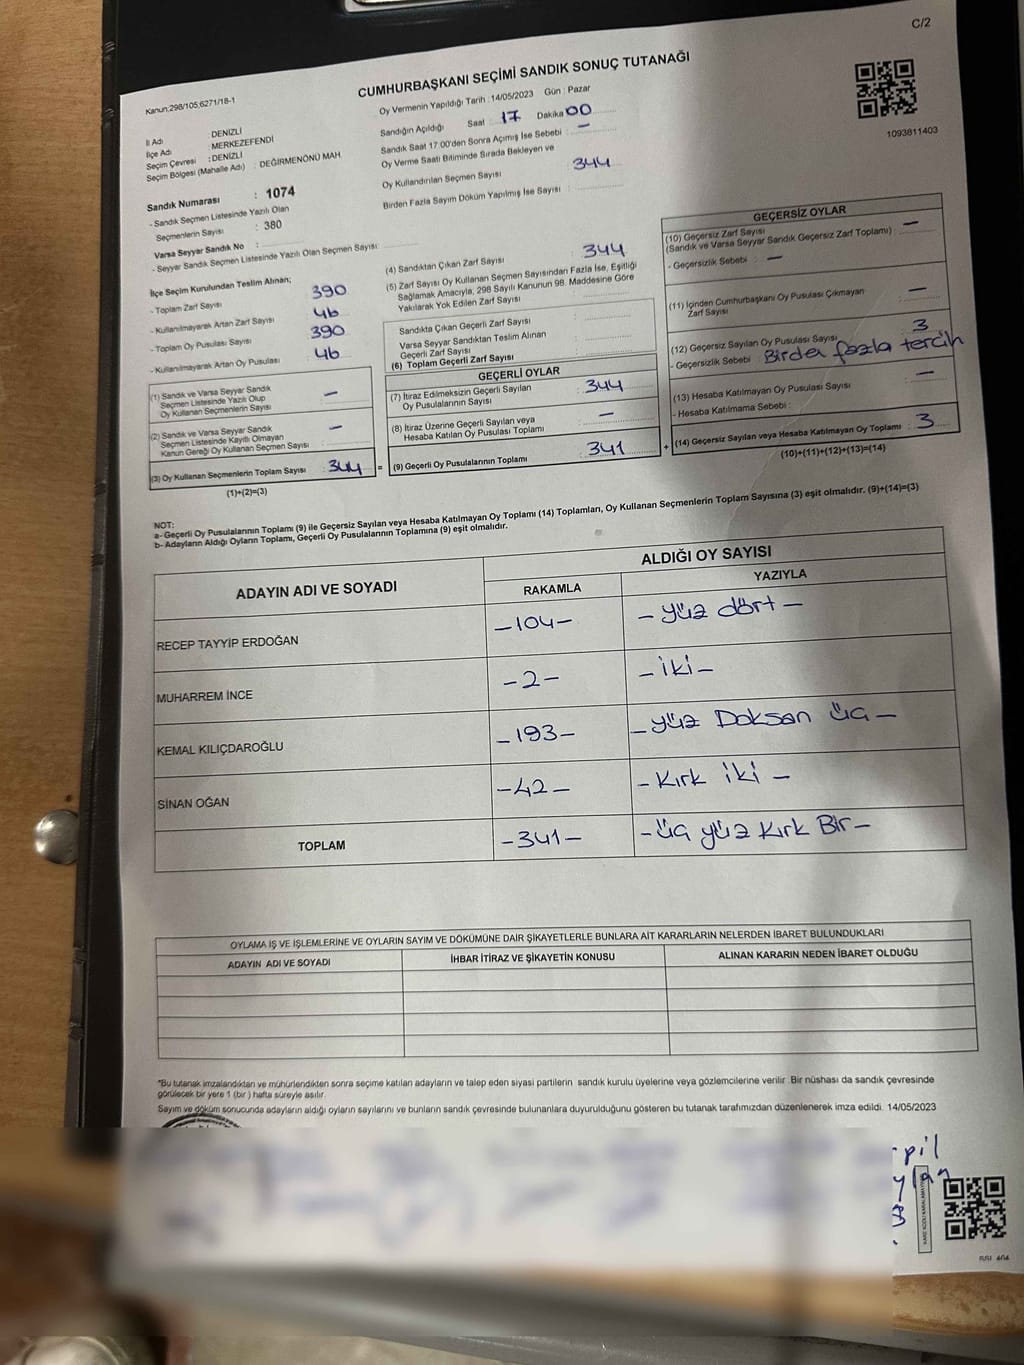 C/2
Kanun:298/105,6271/18-1
CUMHURBAŞKANI SEÇİMİ SANDIK SONUÇ TUTANAĞI
1093811403
İl Adı : DENİZLİ
İlçe Adı : MERKEZEFENDİ
Seçim Çevresi : DENİZLİ
Seçim Bölgesi (Mahalle Adı) : DEĞİRMENÖNÜ MAH
Sandık Numarası : 1074
- Sandık Seçmen Listesinde Yazılı Olan
Seçmenlerin Sayısı : 380
Varsa Seyyar Sandık No :
- Seyyar Sandık Seçmen Listesinde Yazılı Olan Seçmen Sayısı:
Oy Vermenin Yapıldığı Tarih :14/05/2023 Gün : Pazar
Sandığın Açıldığı Saat : 17 Dakika 00
Sandık Saat 17:00'den Sonra Açımış İse Sebebi : —
Oy Verme Saati Bitiminde Sırada Bekleyen ve
Oy Kullandırılan Seçmen Sayısı : 344
Birden Fazla Sayım Döküm Yapılmış İse Sayısı :
İlçe Seçim Kurulundan Teslim Alınan;
- Toplam Zarf Sayısı 390
- Kullanılmayarak Artan Zarf Sayısı 46
- Toplam Oy Pusulası Sayısı 390
- Kullanılmayarak Artan Oy Pusulası 46
(1) Sandık ve Varsa Seyyar Sandık
Seçmen Listesinde Yazılı Olup
Oy Kullanan Seçmenlerin Sayısı —
(2) Sandık ve Varsa Seyyar Sandık
Seçmen Listesinde Kayıtlı Olmayan
Kanun Gereği Oy Kullanan Seçmen Sayısı : —
(3) Oy Kullanan Seçmenlerin Toplam Sayısı : 344 =
(1)+(2)=(3)
(4) Sandıktan Çıkan Zarf Sayısı : 344
(5) Zarf Sayısı Oy Kullanan Seçmen Sayısından Fazla İse, Eşitliği
Sağlamak Amacıyla, 298 Sayılı Kanunun 98. Maddesine Göre
Yakılarak Yok Edilen Zarf Sayısı :
Sandıkta Çıkan Geçerli Zarf Sayısı :
Varsa Seyyar Sandıktan Teslim Alınan
Geçerli Zarf Sayısı :
(6) Toplam Geçerli Zarf Sayısı :
GEÇERLİ OYLAR
(7) İtiraz Edilmeksizin Geçerli Sayılan
Oy Pusulalarının Sayısı : 344
(8) İtiraz Üzerine Geçerli Sayılan veya
Hesaba Katılan Oy Pusulası Toplamı : —
(9) Geçerli Oy Pusulalarının Toplamı : 341 +
GEÇERSİZ OYLAR
(10) Geçersiz Zarf Sayısı
(Sandık ve Varsa Seyyar Sandık Geçersiz Zarf Toplamı) : —
- Geçersizlik Sebebi : —
(11) İçinden Cumhurbaşkanı Oy Pusulası Çıkmayan
Zarf Sayısı : —
(12) Geçersiz Sayılan Oy Pusulası Sayısı : 3
- Geçersizlik Sebebi : Birden fazla tercih
(13) Hesaba Katılmayan Oy Pusulası Sayısı : —
- Hesaba Katılmama Sebebi :
(14) Geçersiz Sayılan veya Hesaba Katılmayan Oy Toplamı : 3
(10)+(11)+(12)+(13)=(14)
NOT:
a- Geçerli Oy Pusulalarının Toplamı (9) ile Geçersiz Sayılan veya Hesaba Katılmayan Oy Toplamı (14) Toplamları, Oy Kullanan Seçmenlerin Toplam Sayısına (3) eşit olmalıdır. (9)+(14)=(3)
b- Adayların Aldığı Oyların Toplamı, Geçerli Oy Pusulalarının Toplamına (9) eşit olmalıdır.
ADAYIN ADI VE SOYADI
ALDIĞI OY SAYISI
RAKAMLA YAZIYLA
RECEP TAYYİP ERDOĞAN -104- - yüz dört -
MUHARREM İNCE -2- - iki -
KEMAL KILIÇDAROĞLU -193- - yüz Doksan üç -
SİNAN OĞAN -42- - Kırk iki -
TOPLAM -341- - üç yüz Kırk Bir -
OYLAMA İŞ VE İŞLEMLERİNE VE OYLARIN SAYIM VE DÖKÜMÜNE DAİR ŞİKAYETLERLE BUNLARA AİT KARARLARIN NELERDEN İBARET BULUNDUKLARI
ADAYIN ADI VE SOYADI İHBAR İTİRAZ VE ŞİKAYETİN KONUSU ALINAN KARARIN NEDEN İBARET OLDUĞU
*Bu tutanak imzalandıktan ve mühürlendikten sonra seçime katılan adayların ve talep eden siyasi partilerin sandık kurulu üyelerine veya gözlemcilerine verilir .Bir nüshası da sandık çevresinde
görülecek bir yere 1 (bir ) hafta süreyle asılır.
Sayım ve döküm sonucunda adayların aldığı oyların sayılarını ve bunların sandık çevresinde bulunanlara duyurulduğunu gösteren bu tutanak tarafımızdan düzenlenerek imza edildi. 14/05/2023